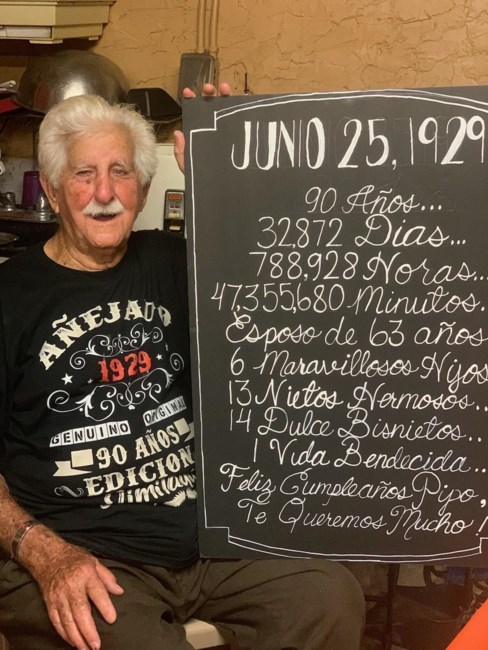 JUNIO 25, 1929
90 Años...
32,872 Dias...
788,928 Horas...
47,355,680 Minutos.
Esposo de 63 años
6 Maravillosos Hijos
13 Nietos Hermosos..
14 Dulce Bisnietos..
1 Vida Bendecida..
Feliz Cumpleaños Pipo,
Te Queremos Mucho!
AÑEJADO
1929
GENUINO ORIGINAL
90 AÑOS
EDICION